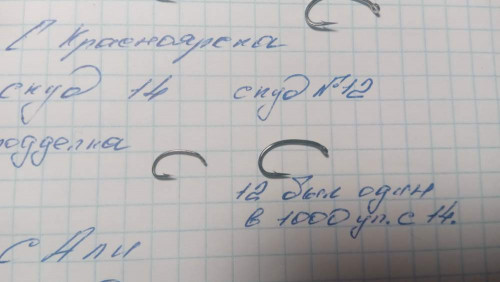 С Красноярска
скуд 14 скуд №12
подделка
12 был один
в 1000 уп. с 14.
с Али